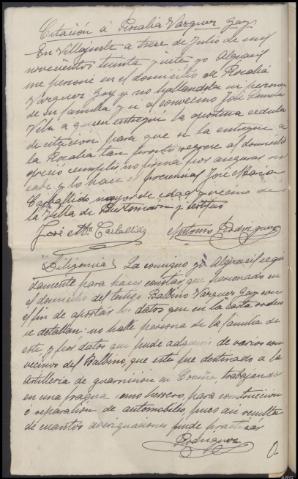 Citación á Rosalía Vázquez Gay
En Villajuste a trece de Julio de mil
novecientos treinta y siete yo Alguacil
me personé en el domicilio de Rosalía
Vázquez Gay y no hallándola ni persona
de su familia y el convecino José
Vila a quien entregué la oportuna cedula
de citación para que en la entregue a
la Rosalía tan pronto regrese al domicilio
ofreció cumplirlo no firma por asegurar no
sabe y lo hace José María
Carballido mayor de edad y vecino de
la Villa de y certifico
José Mª Carballido Antonio Rodriguez
Diligencia / La consigno yo Alguacil
damente para hacer constar que
el domicilio del testigo Balbino Vázquez Gay con
el fin de aportar los datos que en la carta orden
se detallan no halle persona de la familia de
este, y por datos que pude adquirir de varios con
vecinos del Balbino, que esta fue destinado a la
Artillería de guarnición en Coruña, trabajando
en una fragua como herrero, para construccion
o reparación de automoviles pues asi resulta
de cuantas averiguaciones pude practicar
Rodriguez